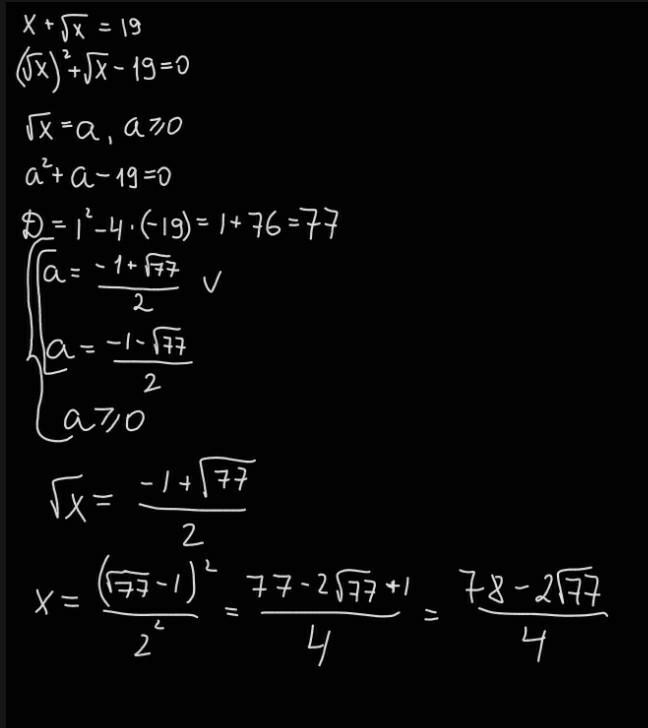 x + √x = 19
(√x)² + √x - 19 = 0
√x = a, a ⩾ 0
a² + a - 19 = 0
D = 1² - 4 · (-19) = 1 + 76 = 77
a = (-1 + √77)/2 V
a = (-1 - √77)/2
a ⩾ 0
√x = (-1 + √77)/2
x = (√77 - 1)²/2² = (77 - 2√77 + 1)/4 = (78 - 2√77)/4